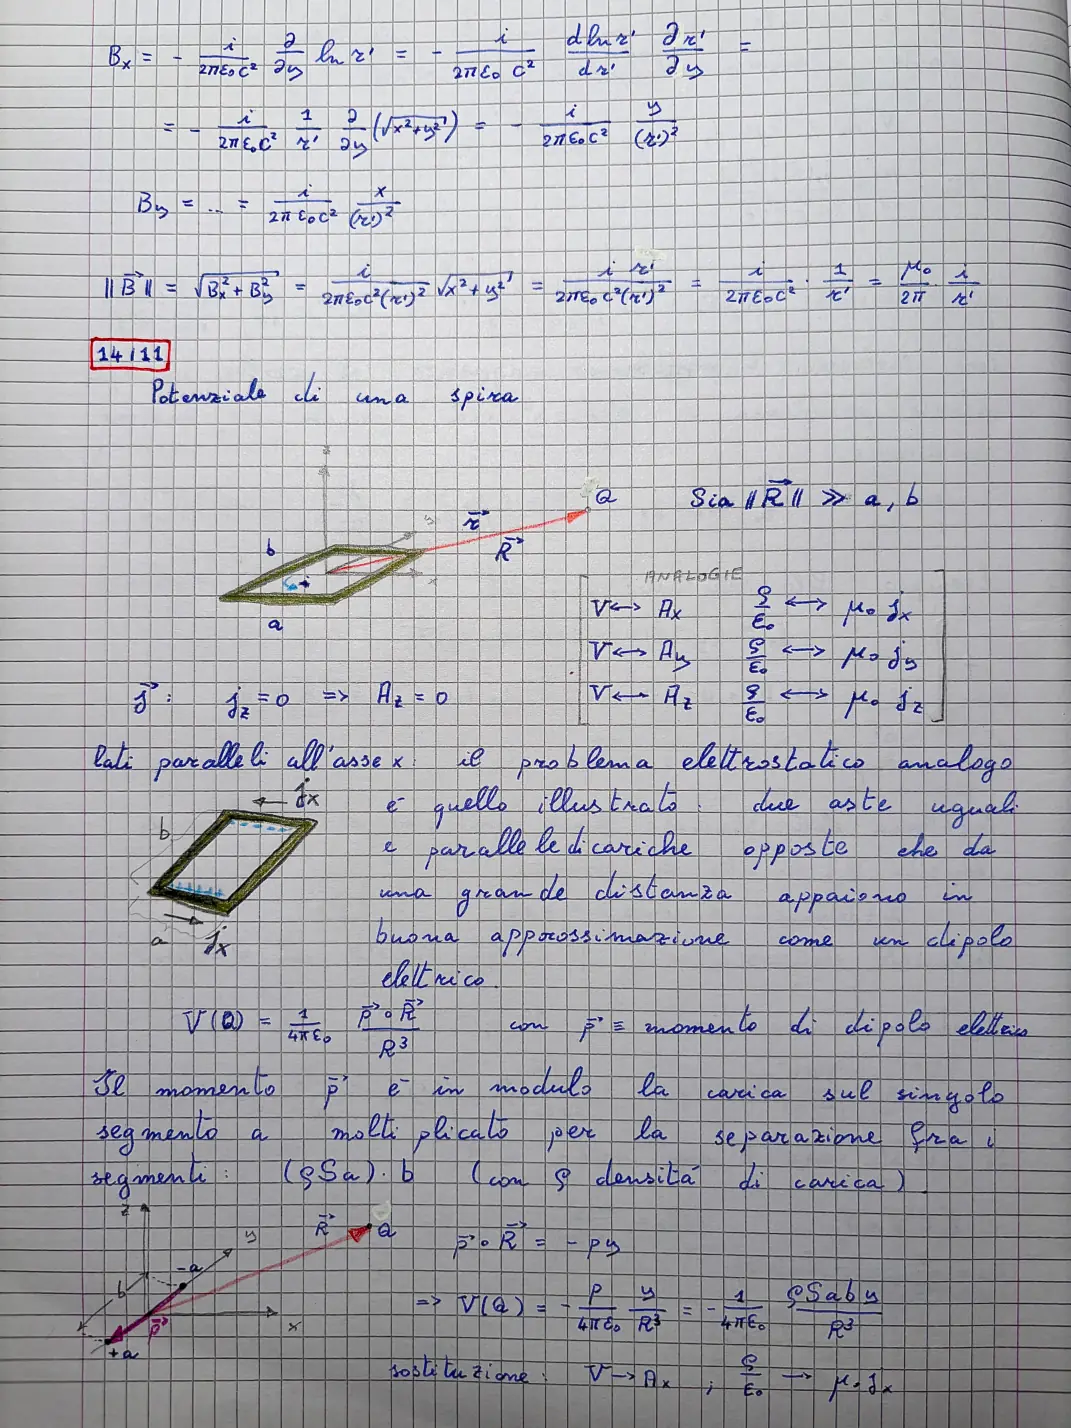 Bx = - i/2πε₀c² ∂/∂y ln r' = - i/2πε₀c² d ln r'/dr' ∂r'/∂y =
= - i/2πε₀c² 1/r' ∂/∂y (√x²+y²) = - i/2πε₀c² y/(r')²
By = ... = i/2πε₀c² x/(r')²
||B⃗|| = √Bx²+By² = i/2πε₀c²(r')² √x²+y² = i r'/2πε₀c²(r')² = i/2πε₀c² · 1/r' = μ₀/2π · i/r'
14/11
Potenziale di una spira
z
y
x
r⃗
R⃗
Q
b
i
a
Sia ||R⃗|| ≫ a, b
ANALOGIE
V ⟷ Ax ρ/ε₀ ⟷ μ₀ jx
V ⟷ Ay ρ/ε₀ ⟷ μ₀ jy
V ⟷ Az ρ/ε₀ ⟷ μ₀ jz
j⃗ : jz = 0 => Az = 0
lati paralleli all'asse x: il problema elettrostatico analogo
è quello illustrato: due aste uguali
e parallele di cariche opposte che da
una grande distanza appaiono in
buona approssimazione come un dipolo
elettrico.
jx
b
a
jx
V(Q) = 1/4πε₀ p⃗∘R⃗/R³ con p⃗ ≡ momento di dipolo elettrico
Il momento p⃗ è in modulo la carica sul singolo
segmento a moltiplicato per la separazione fra i
segmenti: (ρSa)·b (con ρ densità di carica).
z
y
x
R⃗
Q
-a
b
p⃗
+a
p⃗∘R⃗ = - py
=> V(Q) = - p/4πε₀ y/R³ = - 1/4πε₀ ρSaby/R³
sostituzione: V → Ax , ρ/ε₀ → μ₀ jx